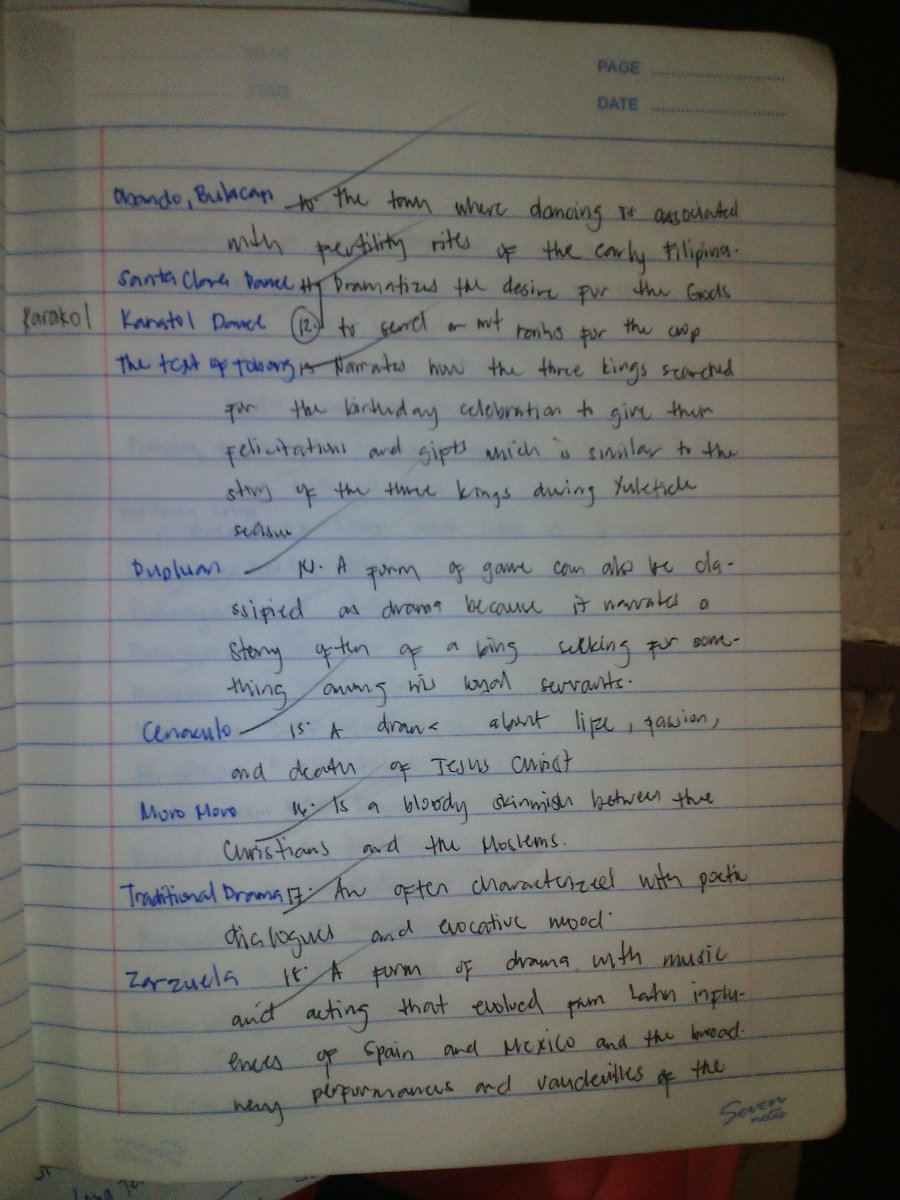 PAGE
DATE
Obando, Bulacan 10. the town where dancing is associated
with fertility rites of the early Filipina.
Santa Clara Dance 11. Dramatizes the desire for the Gods
Karakol Karatol Dance 12. to send or not for the crop
The test of Tobong 13. Narrates how the three kings searched
for the birthday celebration to give their
felicitations and gifts which is similar to the
story of the three kings during Yuletide
season
Dupluan 14. A form of game can also be cla-
ssified as drama because it narrates a
story often of a king seeking for some-
thing among his loyal servants.
Cenaculo 15. A drama about life, passion,
and death of Jesus Christ
Moro Moro 16. Is a bloody skirmish between the
Christians and the Moslems.
Traditional Drama 17. An often characterized with poetic
dialogues and evocative mood.
Zarzuela 18. A form of drama with music
and acting that evolved from Latin influ-
ences of Spain and Mexico and the broad-
way performances and vaudevilles of the
Seven notes